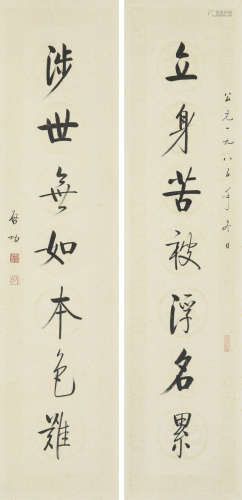 公元一九八五年冬日
立身苦被浮名累
涉世無如本色難
啓功